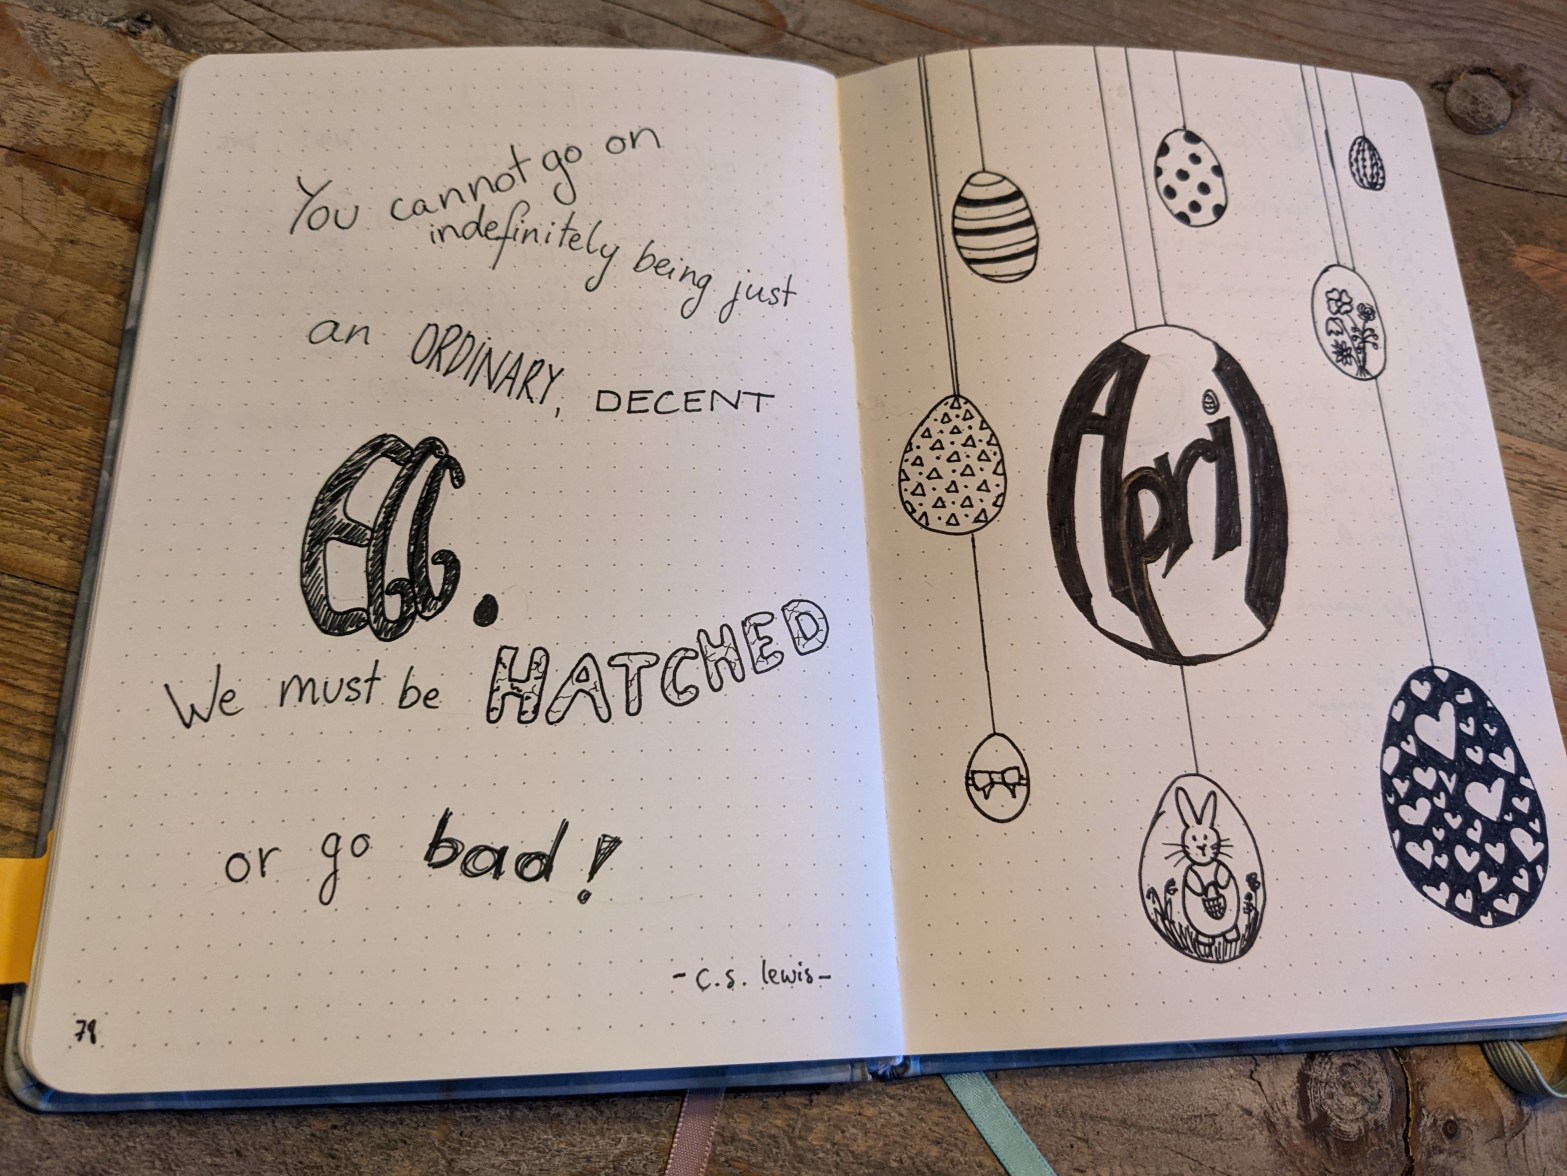 You cannot go on
indefinitely being just
an ORDINARY, DECENT
EGG.
We must be HATCHED
or go bad!
- C.S. lewis -
April